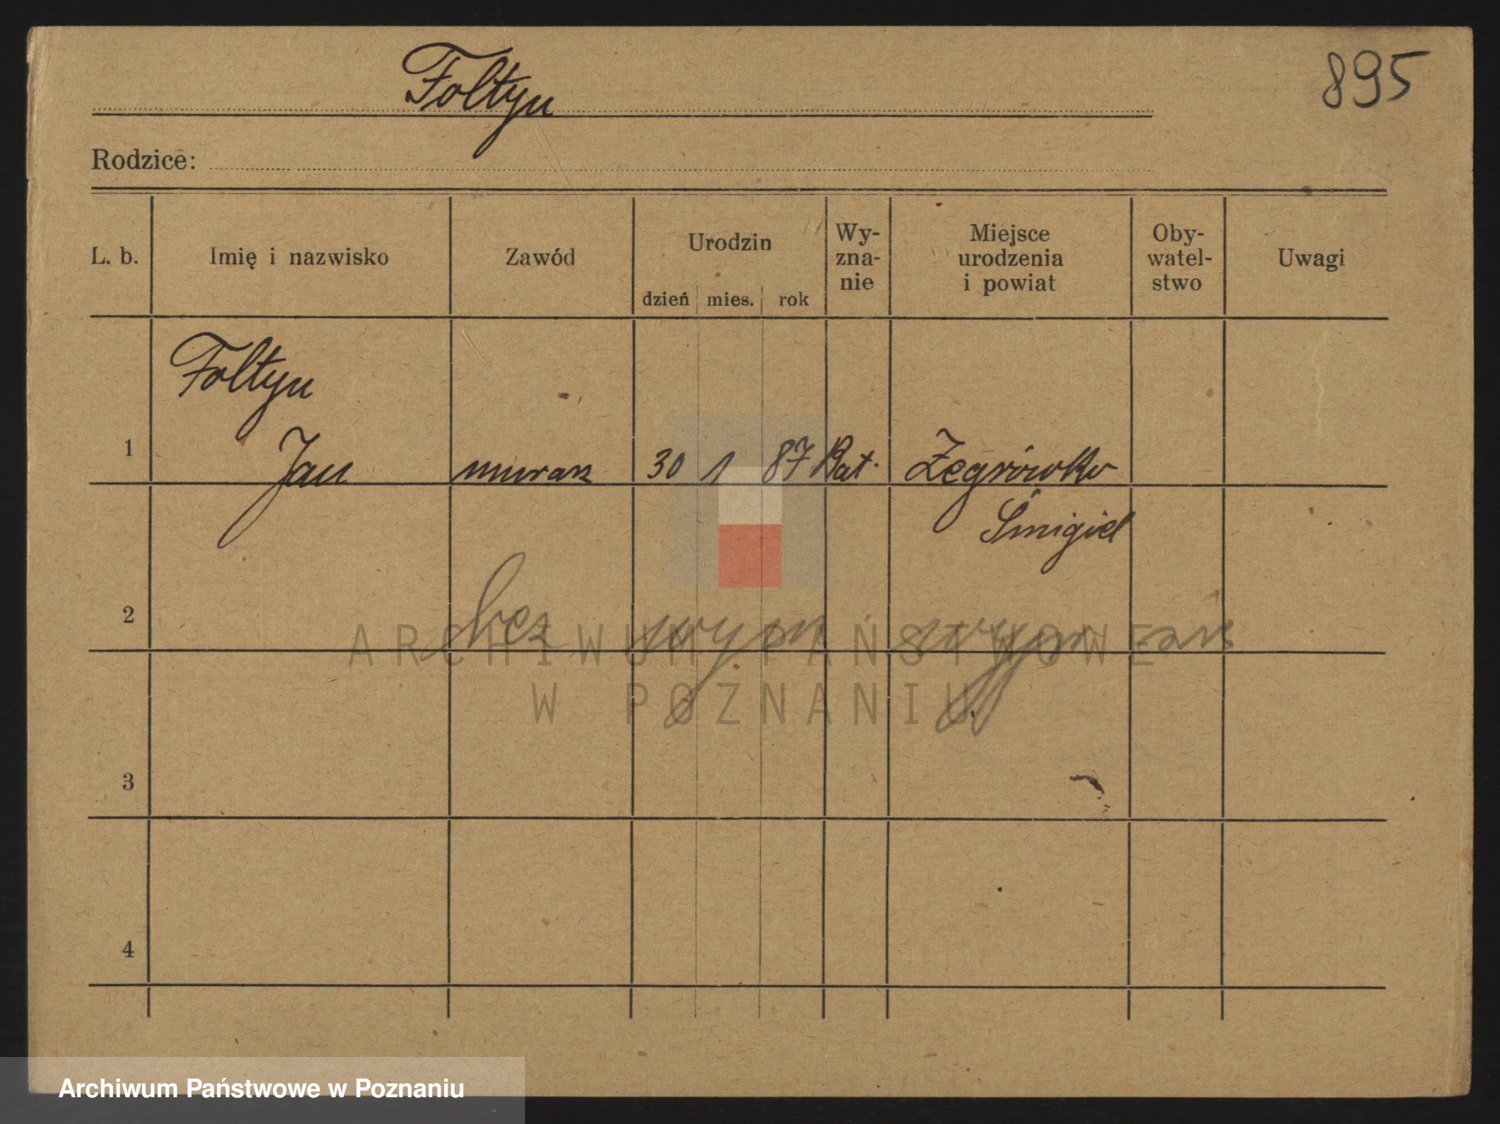 Fołtyn
895
Rodzice:
L. b.
Imię i nazwisko
Zawód
Urodzin
dzień mies. rok
Wy-
zna-
nie
Miejsce
urodzenia
i powiat
Oby-
watel-
stwo
Uwagi
Fołtyn
1 Jan murarz 30 1 87 Kat. Żegrówko
Śmigiel
2 bez
3
4
ARCHIWUM PAŃSTWOWE
W POZNANIU
Archiwum Państwowe w Poznaniu